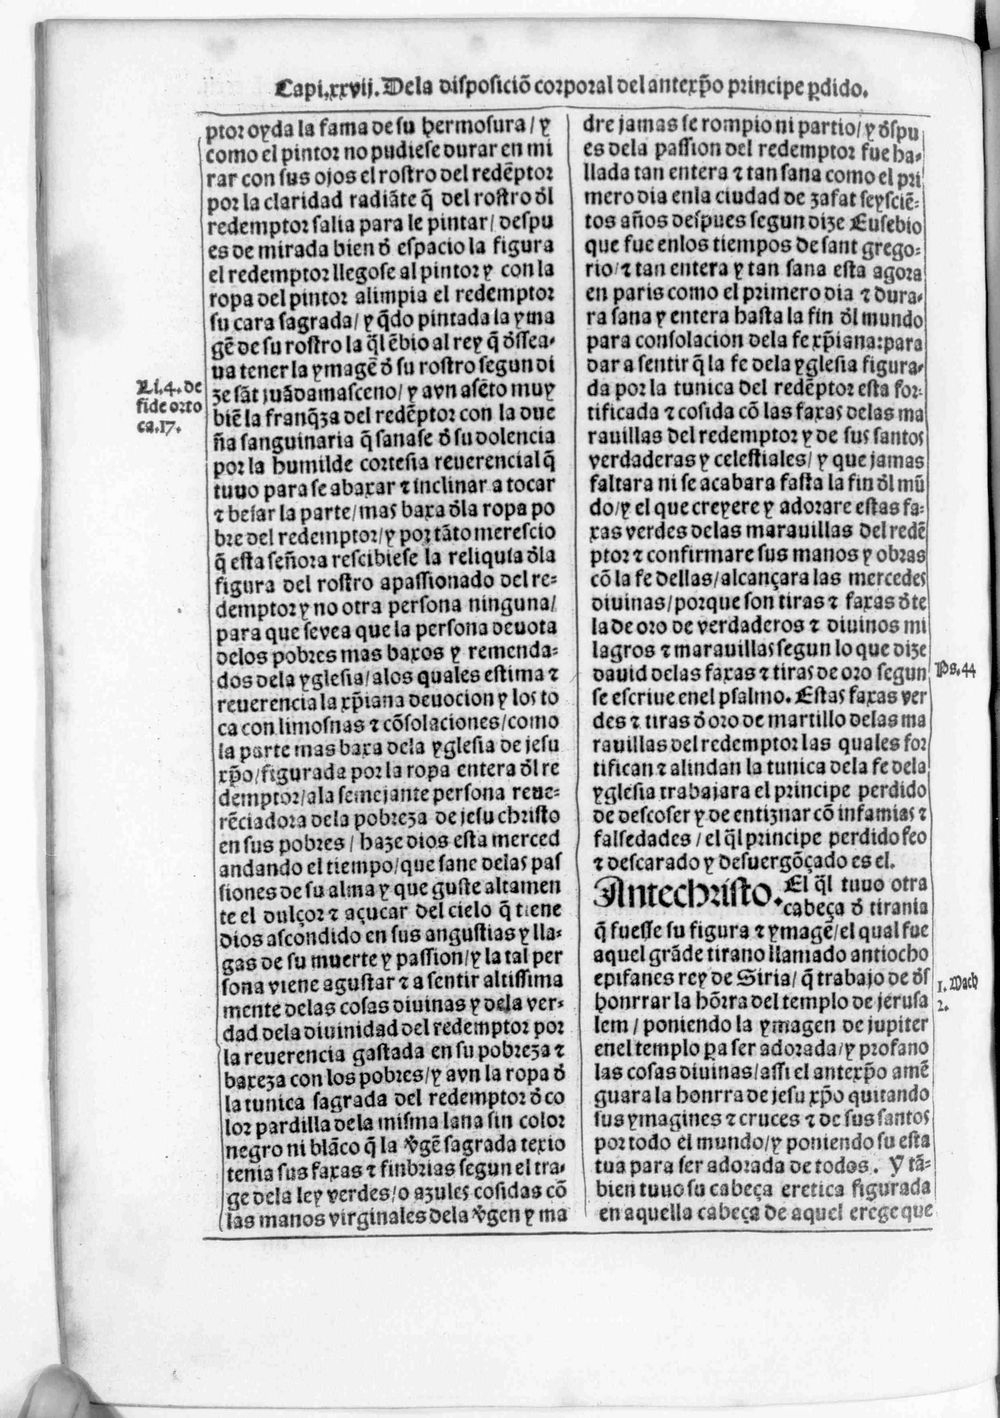 Capi.xxvij. Dela disposiciõ corporal del antexp̃o principe p̱dido.
ptor oyda la fama de su hermosura/ y
como el pintor no pudiese durar en mi
rar con sus ojos el rostro del redẽptor
por la claridad radiãte q̃ del rostro ďl
redemptor salia para le pintar/ despu
es de mirada bien ď espacio la figura
el redemptor llegose al pintor y con la
ropa del pintor alimpia el redemptor
su cara sagrada/ y q̃do pintada la yma
gẽ de su rostro la q̃l ẽbio al rey q̃ ďssea-
ua tener la ymagẽ ď su rostro segun di
ze sãt juã damasceno/ y avn asẽto muy
Li.4.de
fide orto
ca.17.
biẽ la franq̃za del redẽptor con la due
ña sanguinaria q̃ sanase ď su dolencia
por la humilde cortesia reuerencial q̃
tuuo para se abaxar ⁊ inclinar a tocar
⁊ besar la parte/mas baxa ďla ropa po
bre del redemptor/y por tãto merescio
q̃ esta señora rescibiese la reliquia ďla
figura del rostro apassionado del re-
demptor y no otra persona ninguna/
para que se vea que la persona deuota
delos pobres mas baxos y remenda-
dos dela yglesia/alos quales estima ⁊
reuerencia la xp̃iana deuocion y los to
ca con limosnas ⁊ cõsolaciones/como
la parte mas baxa dela yglesia de jesu
xp̃o/figurada por la ropa entera ďl re
demptor/ala semejante persona reue-
rẽciadora dela pobreza de jesu christo
en sus pobres/ haze dios esta merced
andando el tiempo/que sane delas pas
siones de su alma y que guste altamen
te el dulçor ⁊ açucar del cielo q̃ tiene
dios ascondido en sus angustias y lla-
gas de su muerte y passion/y la tal per
sona viene a gustar ⁊ a sentir altissima
mente delas cosas diuinas y dela ver-
dad dela diuinidad del redemptor por
la reuerencia gastada en su pobreza ⁊
baxeza con los pobres/y avn la ropa ď
la tunica sagrada del redemptor ď co
lor pardilla dela misma lana sin color
negro ni blãco q̃ la v̄gẽ sagrada texio
tenia sus faxas ⁊ finbrias segun el tra-
ge dela ley verdes/o azules cosidas cõ
las manos virginales dela v̄gen y ma
dre jamas se rompio ni partio/ y ďspu
es dela passion del redemptor fue ha-
llada tan entera ⁊ tan sana como el pri
mero dia enla ciudad de zafat seysciẽ-
tos años despues segun dize Eusebio
que fue enlos tiempos de sant grego-
rio/⁊ tan entera y tan sana esta agora
en paris como el primero dia ⁊ dura-
ra sana y entera hasta la fin ďl mundo
para consolacion dela fe xp̃iana:para
dar a sentir q̃ la fe dela yglesia figura-
da por la tunica del redẽptor esta for-
tificada ⁊ cosida cõ las faxas delas ma
rauillas del redemptor y de sus santos
verdaderas y celestiales/ y que jamas
faltara ni se acabara fasta la fin ďl mũ
do/y el que creyere y adorare estas fa-
xas verdes delas marauillas del redẽ
ptor ⁊ confirmare sus manos y obras
cõ la fe dellas/alcançara las mercedes
diuinas/porque son tiras ⁊ faxas ď te
la de oro de verdaderos ⁊ diuinos mi
lagros ⁊ marauillas segun lo que dize
dauid delas faxas ⁊ tiras de oro segun
Ps.44
se escriue enel psalmo. Estas faxas ver
des ⁊ tiras ď oro de martillo delas ma
rauillas del redemptor las quales for
tifican ⁊ alindan la tunica dela fe dela
yglesia trabajara el principe perdido
de descoser y de entiznar cõ infamias ⁊
falsedades/ el q̃l principe perdido feo
⁊ descarado y desuergõçado es el.
Antechristo. El q̃l tuuo otra
cabeça ď tirania
q̃ fuesse su figura ⁊ ymagẽ/el qual fue
aquel grãde tirano llamado antiocho
epifanes rey de Siria/ q̃ trabajo de ďs
1. Mach
2.
honrrar la hõrra del templo de jerusa
lem/ poniendo la ymagen de jupiter
enel templo p̱a ser adorada/y profano
las cosas diuinas/assi el antexp̃o amẽ
guara la honrra de jesu xp̃o quitando
sus ymagines ⁊ cruces ⁊ de sus santos
por todo el mundo/y poniendo su esta
tua para ser adorada de todos. Y tã-
bien tuuo su cabeça eretica figurada
en aquella cabeça de aquel erege que